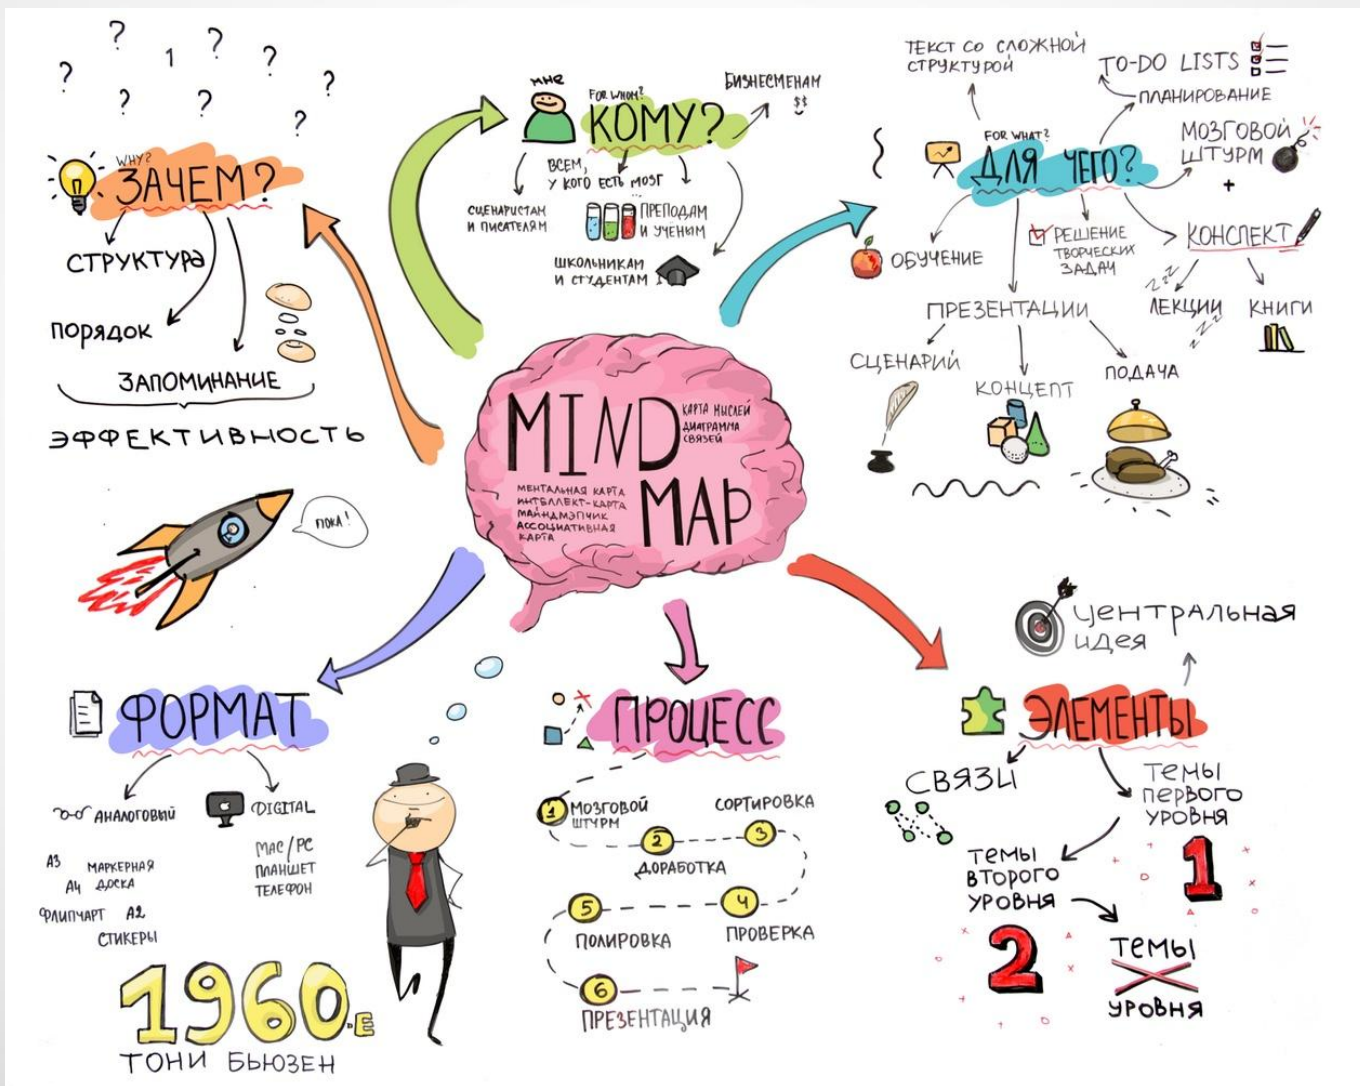 ? ? 1 ? ? ? ? ? ? ?
WHY?
ЗАЧЕМ?
СТРУКТУРА
ПОРЯДОК
ЗАПОМИНАНИЕ
ЭФФЕКТИВНОСТЬ
ПОКА!
МНЕ
FOR WHOM?
КОМУ?
БИЗНЕСМЕНАМ
$$
ВСЕМ,
У КОГО ЕСТЬ МОЗГ
...
СЦЕНАРИСТАМ
И ПИСАТЕЛЯМ
ПРЕПОДАМ
И УЧЁНЫМ
ШКОЛЬНИКАМ
И СТУДЕНТАМ
FOR WHAT?
ДЛЯ ЧЕГО?
ТЕКСТ СО СЛОЖНОЙ
СТРУКТУРОЙ
TO-DO LISTS
ПЛАНИРОВАНИЕ
МОЗГОВОЙ
ШТУРМ
+
КОНСПЕКТ
ZZZ
ЛЕКЦИИ
ZZZ
КНИГИ
РЕШЕНИЕ
ТВОРЧЕСКИХ
ЗАДАЧ
ОБУЧЕНИЕ
ПРЕЗЕНТАЦИИ
СЦЕНАРИЙ
КОНЦЕПТ
ПОДАЧА
MIND
MAP
КАРТА МЫСЛЕЙ
ДИАГРАММА
СВЯЗЕЙ
МЕНТАЛЬНАЯ КАРТА
ИНТЕЛЛЕКТ-КАРТА
МАЙНДМЭПЧИК
АССОЦИАТИВНАЯ
КАРТА
ФОРМАТ
АНАЛОГОВЫЙ
DIGITAL
А3
МАРКЕРНАЯ
ДОСКА
А4
ФЛИПЧАРТ
А2
СТИКЕРЫ
MAC/PC
ПЛАНШЕТ
ТЕЛЕФОН
1960-Е
ТОНИ БЬЮЗЕН
ПРОЦЕСС
1
МОЗГОВОЙ
ШТУРМ
2
ДОРАБОТКА
3
СОРТИРОВКА
4
ПРОВЕРКА
5
ПОЛИРОВКА
6
ПРЕЗЕНТАЦИЯ
ЭЛЕМЕНТЫ
ЦЕНТРАЛЬНАЯ
ИДЕЯ
СВЯЗИ
ТЕМЫ
ПЕРВОГО
УРОВНЯ
1
ТЕМЫ
ВТОРОГО
УРОВНЯ
2
ТЕМЫ
X
УРОВНЯ